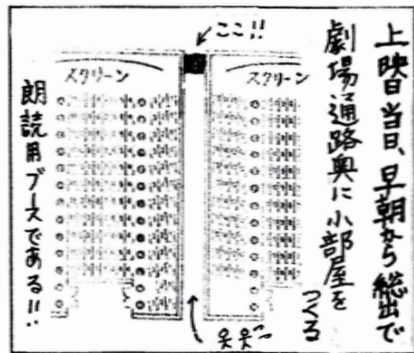 上映日当日、早朝から総出で
劇場通路奥に小部屋を
つくる
ここ!!
スクリーン
スクリーン
朗読用ブースである!!